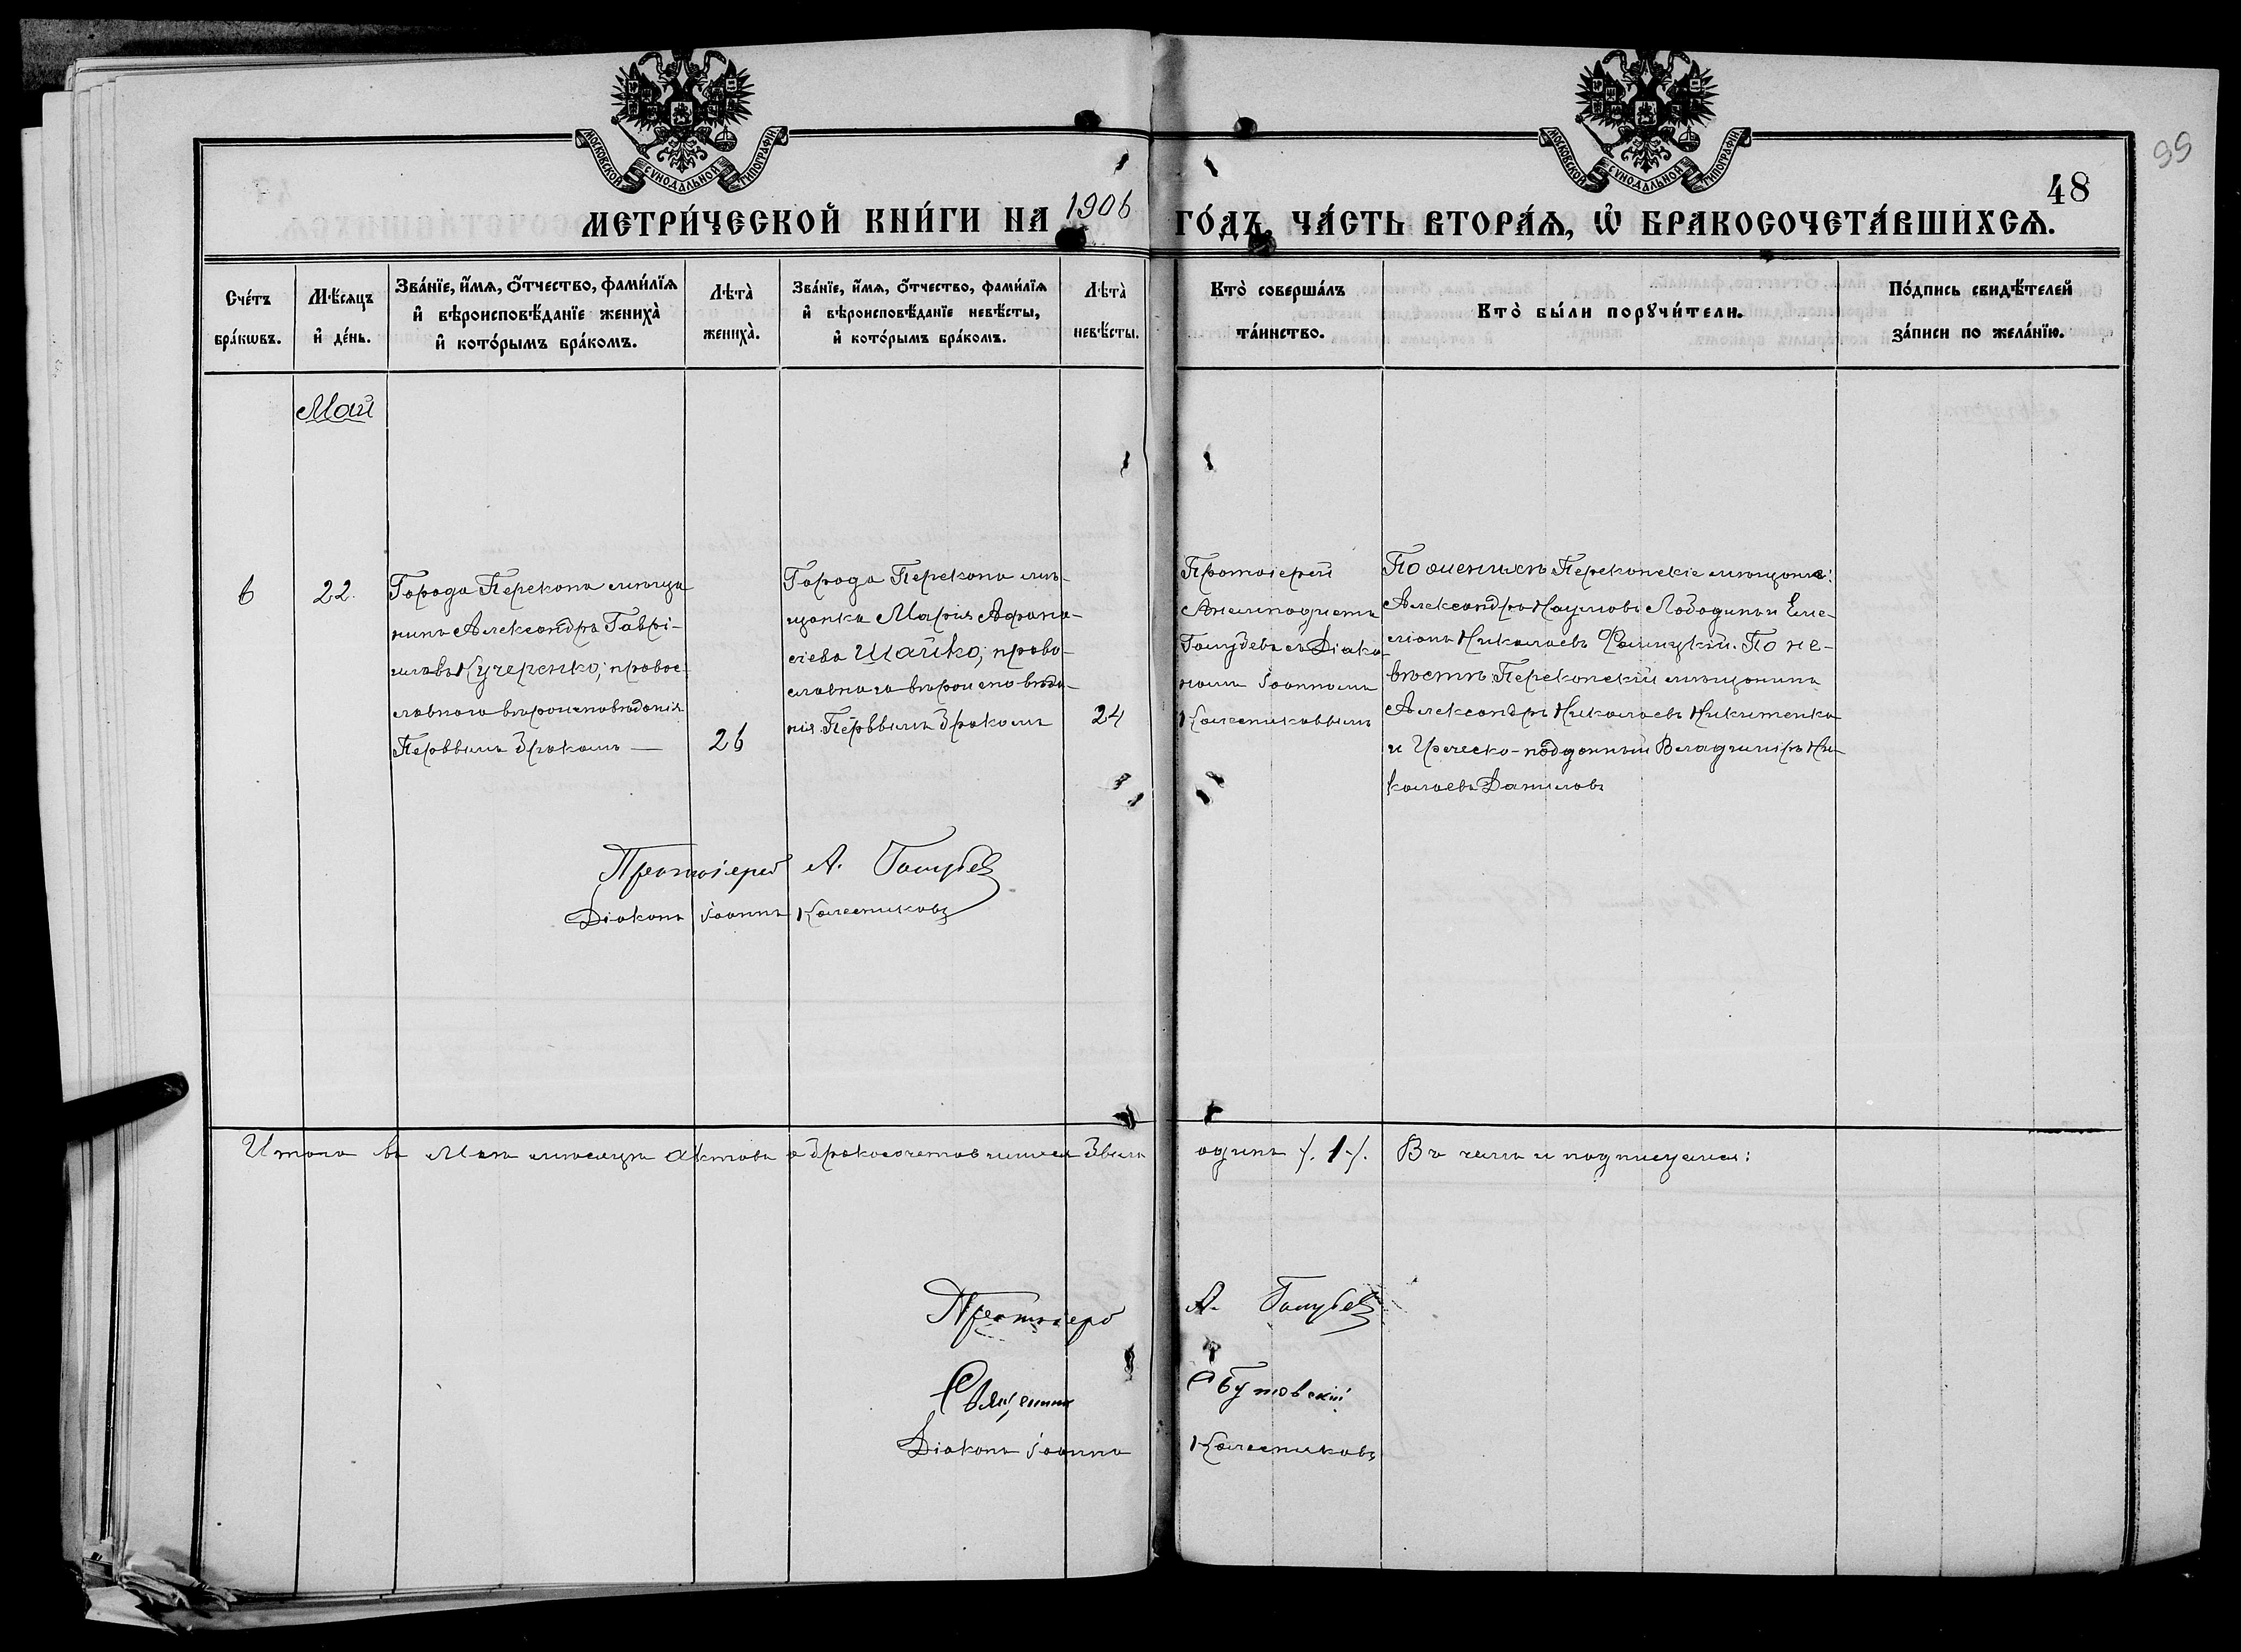 МОСКОВСКОЙ СУНОДАЛЬНОЙ ТИПОГРАФІИ
МОСКОВСКОЙ СУНОДАЛЬНОЙ ТИПОГРАФІИ
99
48
МЕТРИ́ЧЕСКОЙ КНИ́ГИ НА 1906 ГО́ДЪ, ЧА́СТЬ ВТОРА́Ѧ, Ѡ҆ БРАКОСОЧЕТА́ВШИХСѦ.
Сче́тъ
бра́кѡвъ.
Мѣ́сѧцъ
и҆ де́нь.
Зва́нїе, и҆́мѧ, ѻ҆́тчество, фами́лїѧ
и҆ вѣроисповѣ́данїе жениха̀
и҆ кото́рымъ бра́комъ.
Лѣта̀
жениха̀.
Зва́нїе, и҆́мѧ, ѻ҆́тчество, фами́лїѧ
и҆ вѣроисповѣ́данїе невѣ́сты,
и҆ кото́рымъ бра́комъ.
Лѣта̀
невѣ́сты.
Кто̀ соверша́лъ
та́инство.
Кто̀ бы́ли порꙋчи́тели.
По́дпись свидѣ́телей
за́писи по жела́нїю.
Май
6
22.
Города Перекопа мѣща
нинъ Александръ Гаврі-
иловъ Кучеренко; правос-
лавнаго вѣроисповѣданія
Перввымъ бракомъ —
26
Города Перекопа мѣ-
щанка Марія Афана-
сіева Шайко; право-
славнаго вѣроисповѣда-
нія. Перввымъ бракомъ
24
Протоіерей
Анемподистъ
Голубевъ съ Діако-
номъ Іоанномъ
Колесниковымъ
По женихѣ Перекопскіе мѣщане:
Александръ Наумовъ Лободинъ и Еме-
ліанъ Николаевъ Фалицкій. По не-
вѣстѣ: Перекопскій мѣщанинъ
Александръ Николаевъ Никитенко
и Греческо-подданный Владиміръ Ни-
колаевъ Даниловъ
Протоіерей А. Голубев
Діаконъ Іоаннъ Колесниковъ
Итого въ Маѣ мѣсяцѣ актовъ о бракосочетавшихся было одинъ /.1/. Въ чемъ и подписуемся:
Протоіерей А. Голубев
Священникъ С Бутовскій
Діаконъ Іоаннъ Колесниковъ